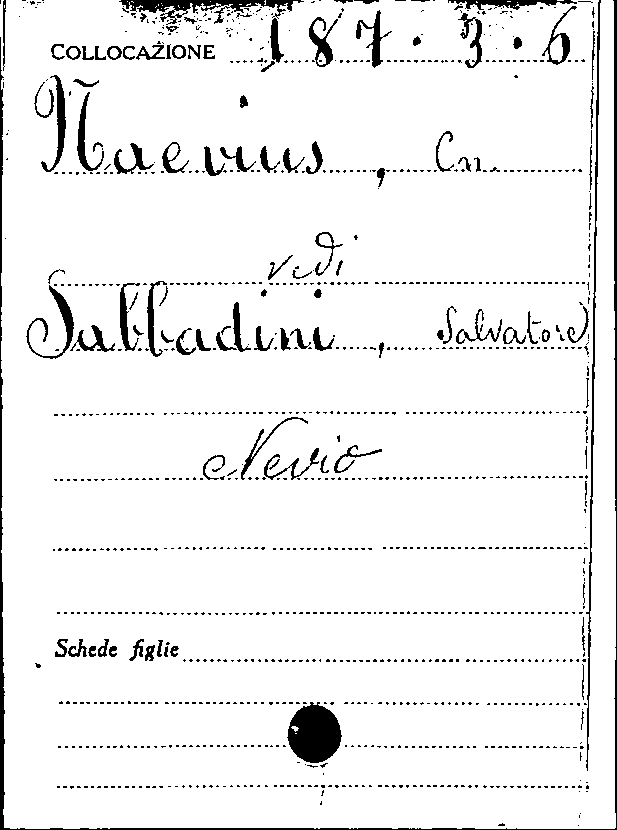 COLLOCAZIONE 187.3.6
Naevius, Cn.
vedi
Sabbadini, Salvatore
Nevio
Schede figlie